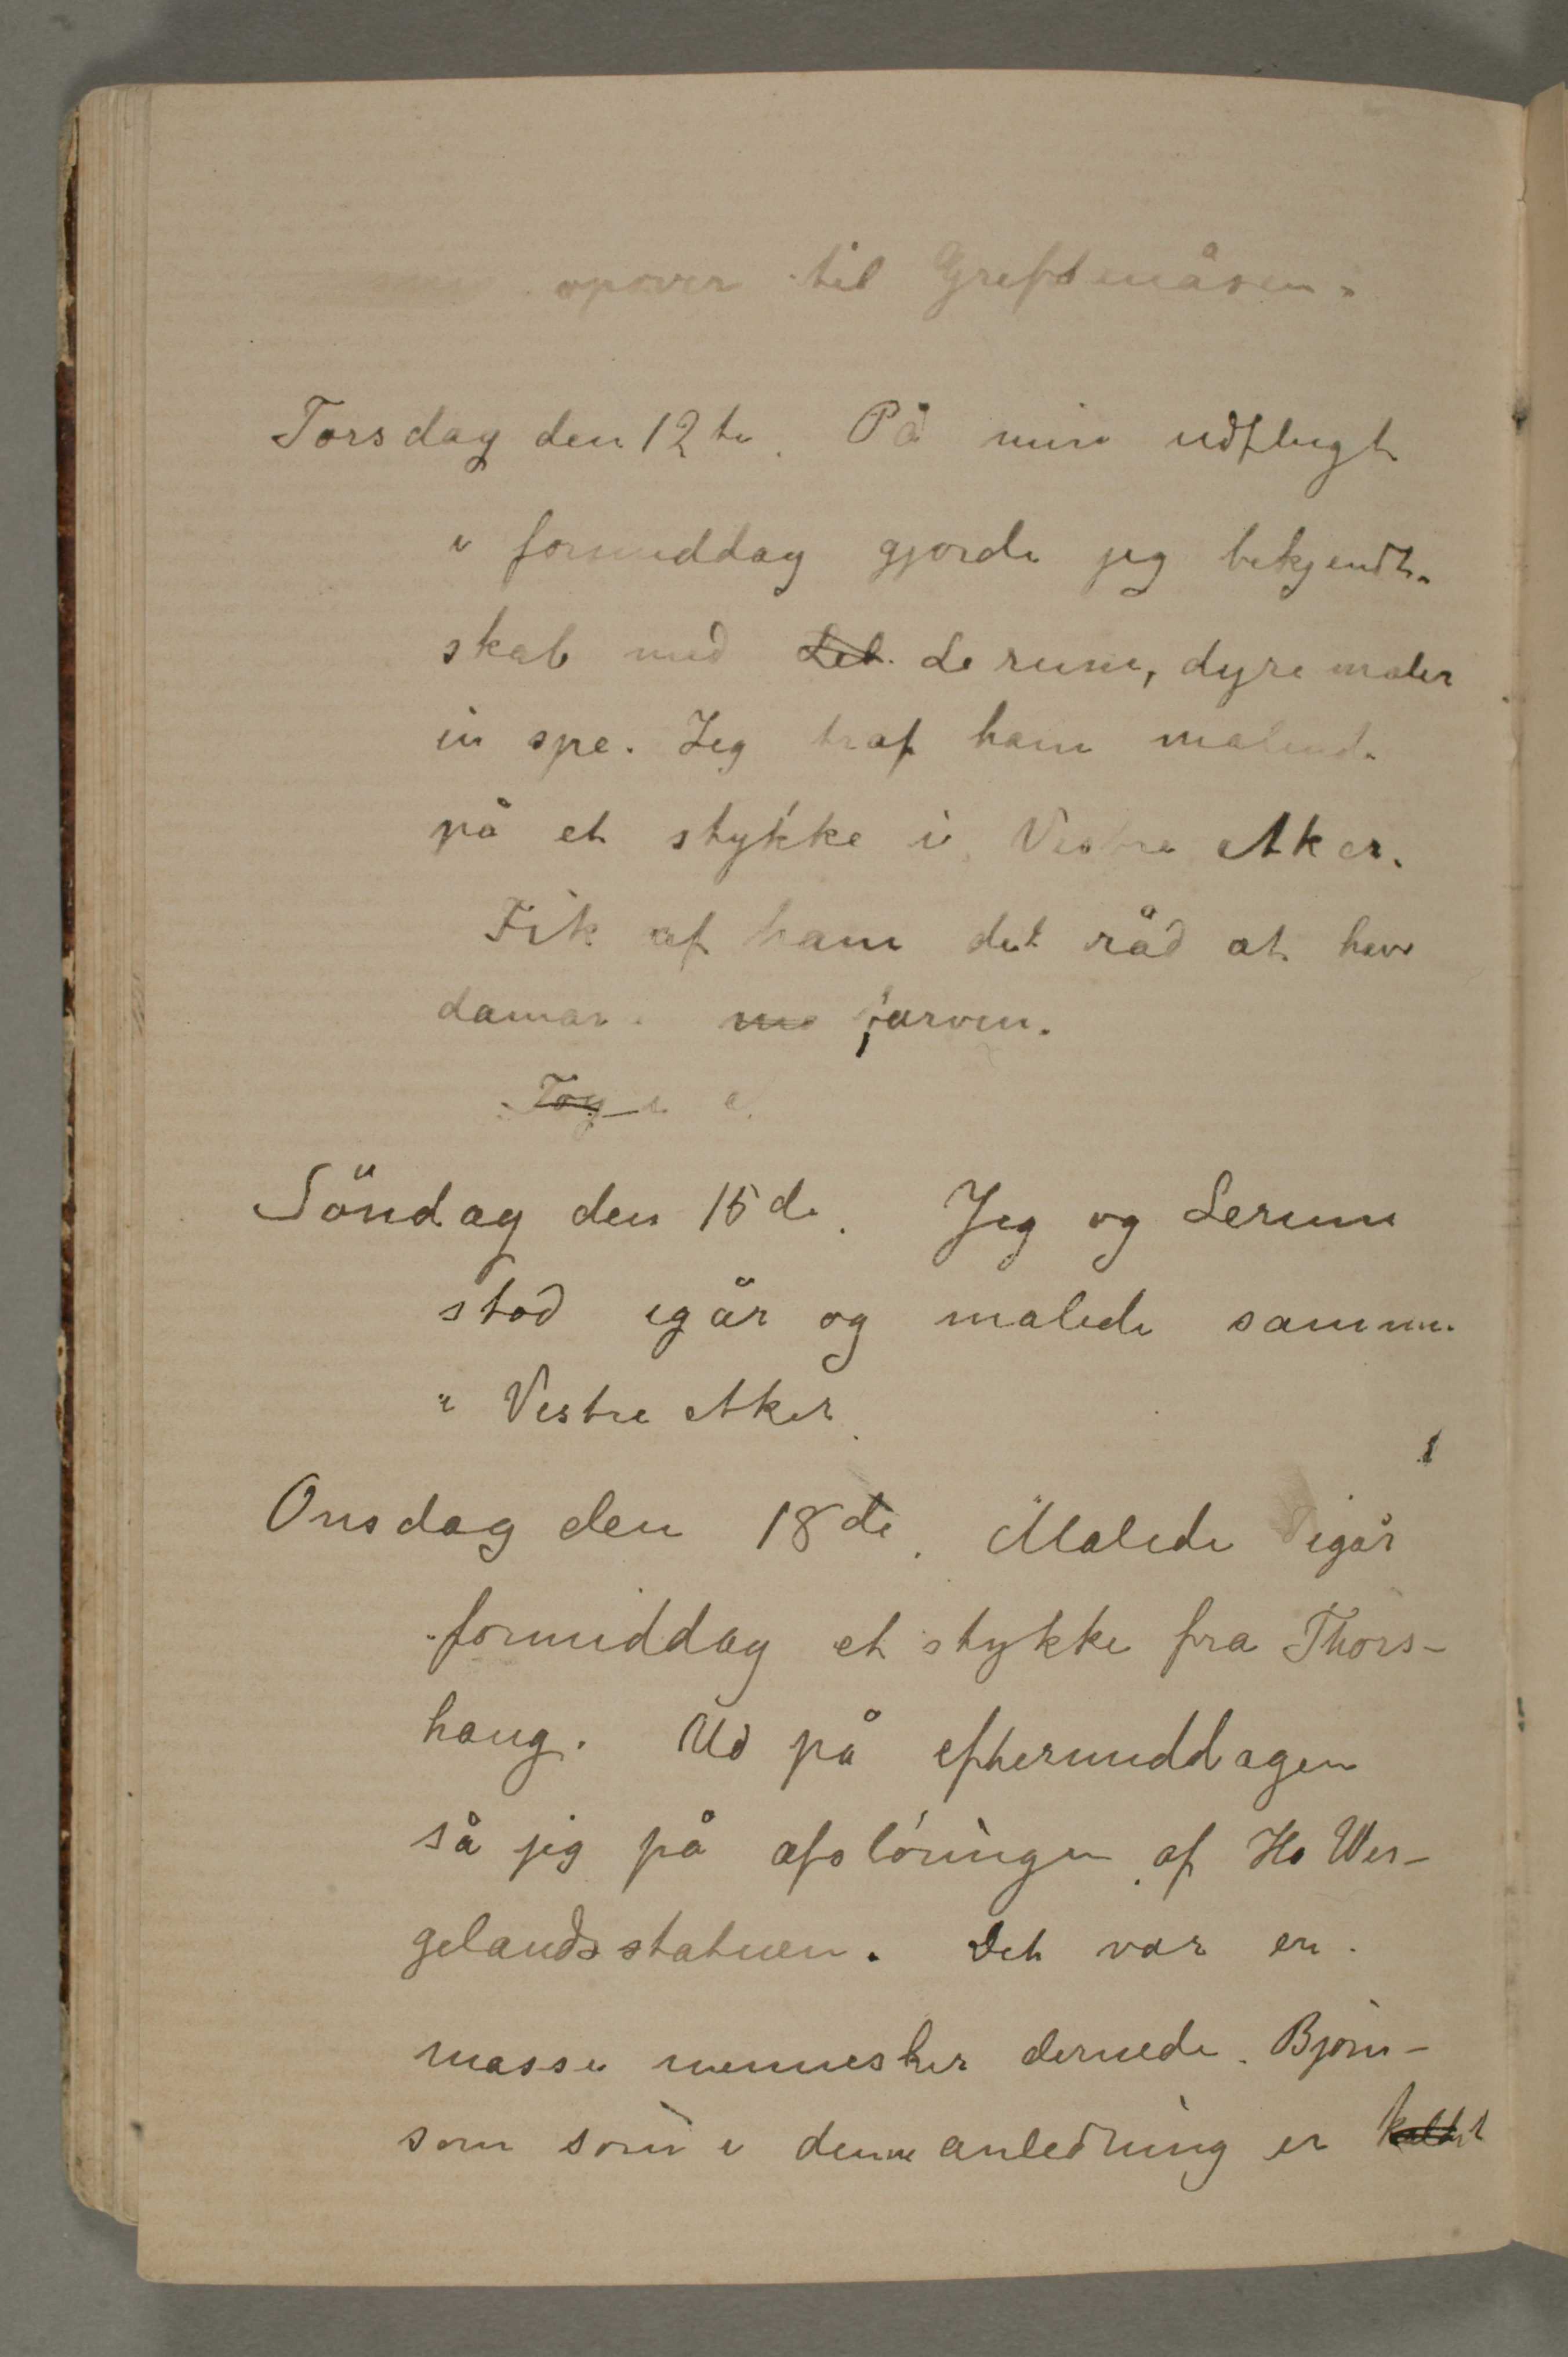 opover til Grefsenåsen.
Torsdag den 12te. På min udflugt
i formiddag gjorde jeg bekjendt-
skab med Let Lerum, dyremaler
in spe. Jeg traf ham malende
på et stykke i Vestre Aker.
Fik af ham det råd at have
damar. me farven.
Tog
Söndag den 15de. Jeg og Lerum
stod igår og malede sammen
i Vestre Aker.
Onsdag den 18de. Malede igår
formiddag et stykke fra Thors-
haug. Ud på eftermiddagen
så jeg på afsløringen af H. Wer-
gelandsstatuen. Det var en
masse mennesker dernede. Bjørn-
son som i denne anledning er kaldet